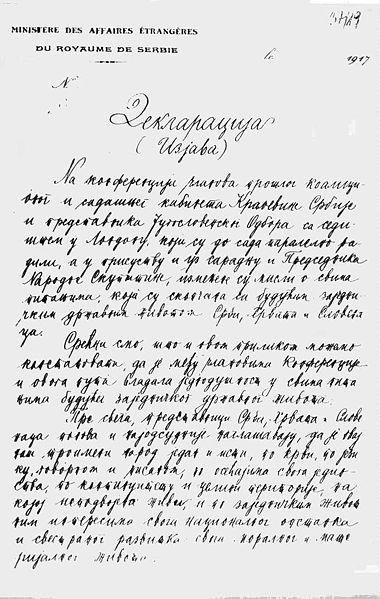 MINISTÈRE DES AFFAIRES ÉTRANGÈRES
DU ROYAUME DE SERBIE
le 1917
№
Декларација
(Изјава)
На конференцији чланова прошлог коалици-
оног и садашњег кабинета Краљевине Србије
и представника Југословенског Одбора са седи-
штем у Лондону, који су до сада паралелно ра-
дили, а у присуству и уз сарадњу и Председника
Народне Скупштине, измењене су мисли о свима
питањима, која су скопчана са будућим заједни-
чким државним животом Срба, Хрвата и Словена-
ца.
Срећни смо, што и овом приликом можемо
констатовати, да је међу члановима Конференције
и овога пута владала једнодушност у свима пита-
њима будућег заједничког државног живота.
Пре свега, представници Срба, Хрвата и Слове-
наца понова и најодсудније наглашавају, да је овај
наш троимени народ један и исти, по крви, по јези-
ку, говорном и писаном, по осећајима свога једин-
ства, по континуитету и целини територије, на
којој неподвојено живи, и по заједничким живот-
ним потребама свога националног опстанка
и свестраног развитка свога моралног и мате-
ријалног живота.